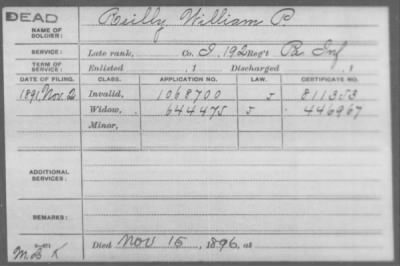 DEAD
Reilly William P.
NAME OF SOLDIER:
SERVICE: Late rank, Co. I, 192 Reg't Pa. Inf
TERM OF SERVICE: Enlisted , 1 Discharged , 1
DATE OF FILING. CLASS. APPLICATION NO. LAW. CERTIFICATE NO.
1891, Nov. 2 Invalid, 1068700 5 811353
Widow, 644475 5 446967
Minor,
ADDITIONAL SERVICES:
REMARKS:
Died Nov 15, 1896, at